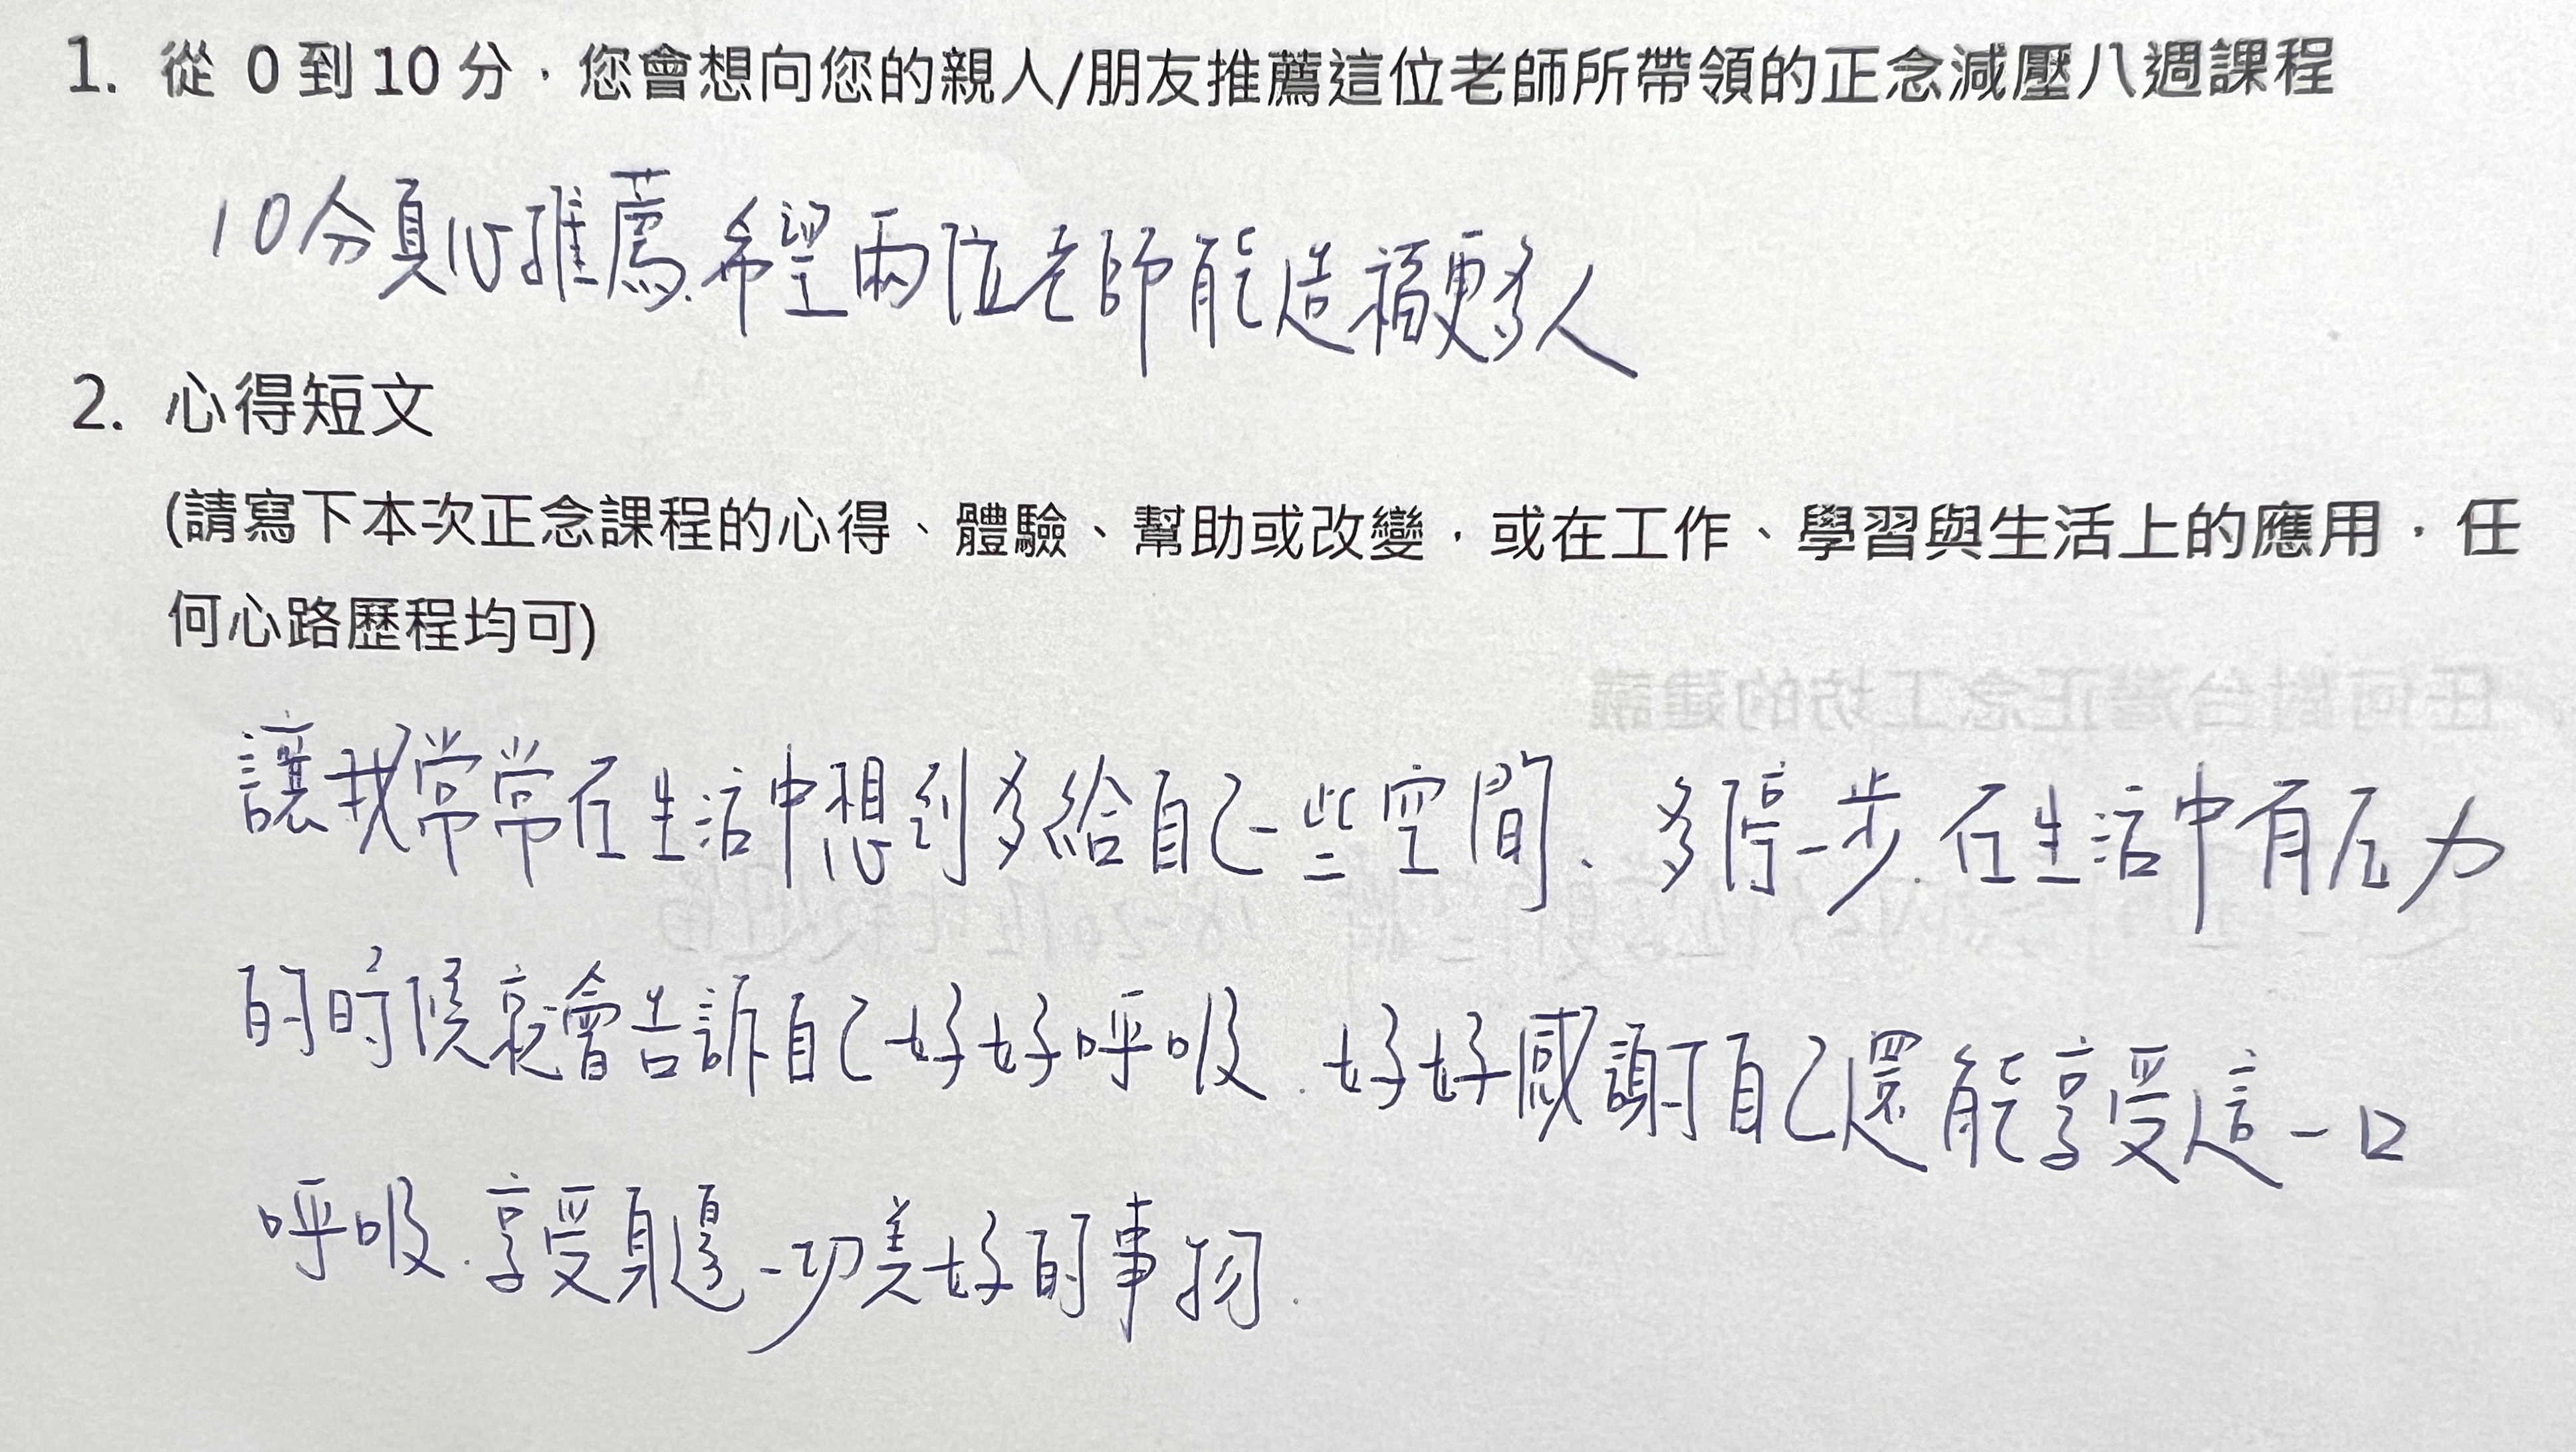 1. 從 0 到 10 分，您會想向您的親人/朋友推薦這位老師所帶領的正念減壓八週課程
10分真心推薦.希望兩位老師能造福更多人
2. 心得短文
(請寫下本次正念課程的心得、體驗、幫助或改變，或在工作、學習與生活上的應用，任
何心路歷程均可)
任何對台灣正念工坊的建議
讓我常常在生活中想到多給自己一些空間、多停一步.在生活中有压力
的時候就會告訴自己好好呼吸.好好感謝自己還能享受這一口
呼吸.享受身邊一切美好的事物.